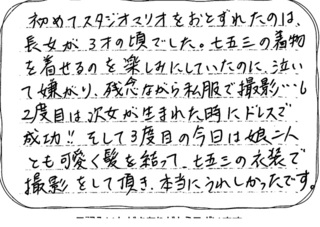 初めてスタジオマリオをおとずれたのは、
長女が3才の頃でした。七五三の着物
を着せるのを楽しみにしていたのに、泣い
て嫌がり、残念ながら私服で撮影…。
2度目は次女が生まれた時にドレスで
成功!! そして3度目の今日は娘二人
とも可愛く髪を結って、七五三の衣装で
撮影をして頂き、本当にうれしかったです。